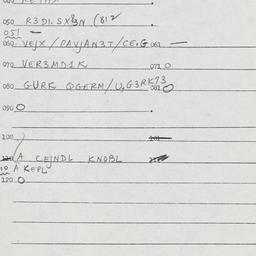 050 R3DI.SX3N (812
051 —
060 VEJX / PAVJAN3T / CE.G 061 —
070 VER3MD1K 071 O
080 GURK QGERM/U,G3RK73 081 O
090 O
100
A CEJNDL KNOBL
A KEPL
120 O